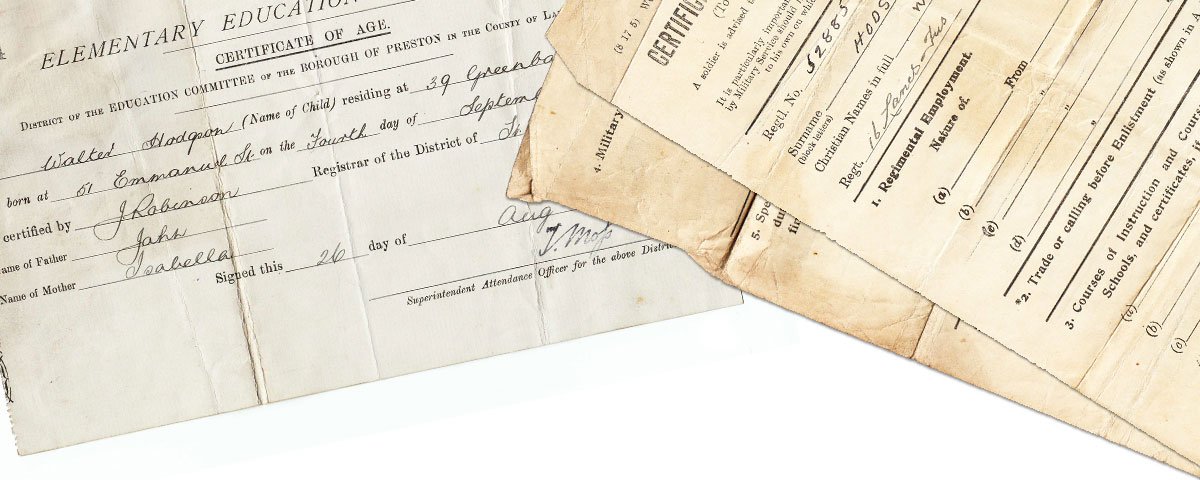 ELEMENTARY EDUCATION
CERTIFICATE OF AGE.
DISTRICT OF THE EDUCATION COMMITTEE OF THE BOROUGH OF PRESTON IN THE COUNTY OF LA
Walter Hodgson (Name of Child) residing at 39 Greenba
born at 51 Emmanuel St on the Fourth day of Septemb
certified by J Robinson Registrar of the District of
ame of Father John
Name of Mother Isabella
Signed this 26 day of Aug
T. Moss
Superintendent Attendance Officer for the above Distri
4. Military
5. Spe
du
fi
CERTIFIC
(To
A soldier is advised t
It is particularly importan
by Military Service should
to his own on whic
Regtl. No. 52885
Surname HODS
(block letters)
Christian Names in full W
Regt. 16 Lancs Fus
1. Regimental Employment.
Nature of. From
(a)
(b) "
(c) "
(d)
*2. Trade or calling before Enlistment (as shown in
3. Courses of Instruction and Cours
Schools, and certificates, if
(a)
(b)
(c)